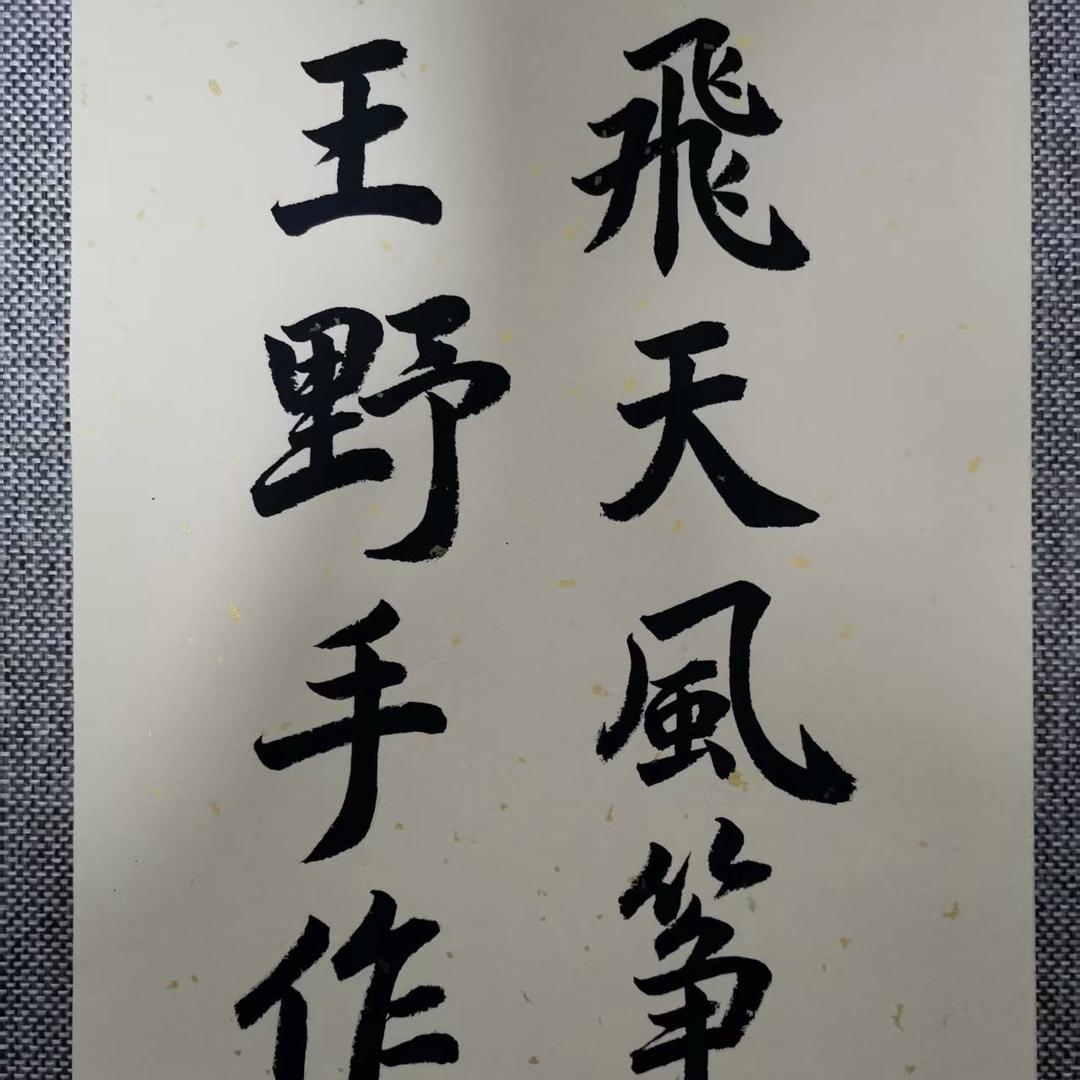 飛天風筝
王野手作